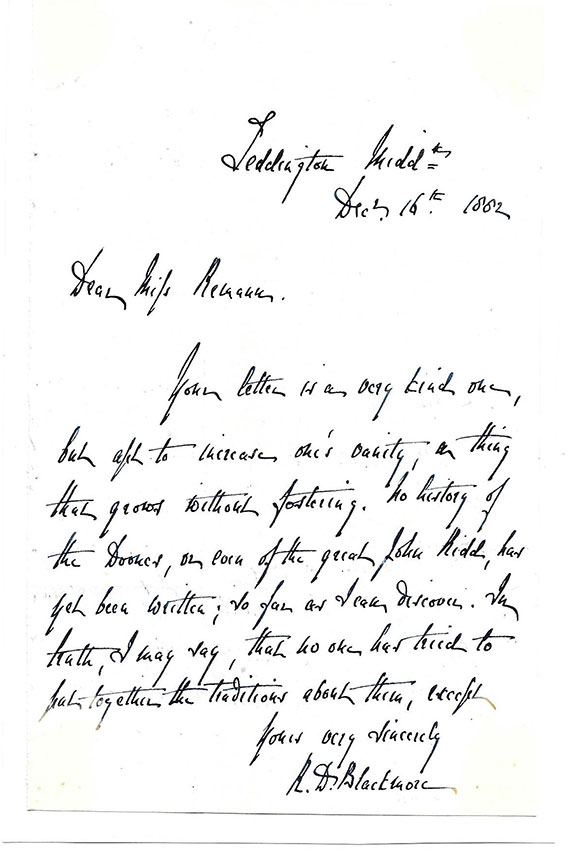 Teddington Midd<sup>x</sup>
Decr. 16th. 1882
Dear Miss
Your letter is a very kind one,
but apt to increase one's vanity, a thing
that grows without fostering. No history of
the Doones, or even of the great John Ridd, has
yet been written; so far as I can discover. In
truth, I may say, that no one has tried to
put together the traditions about them, except
Yours very sincerely
R. D. Blackmore